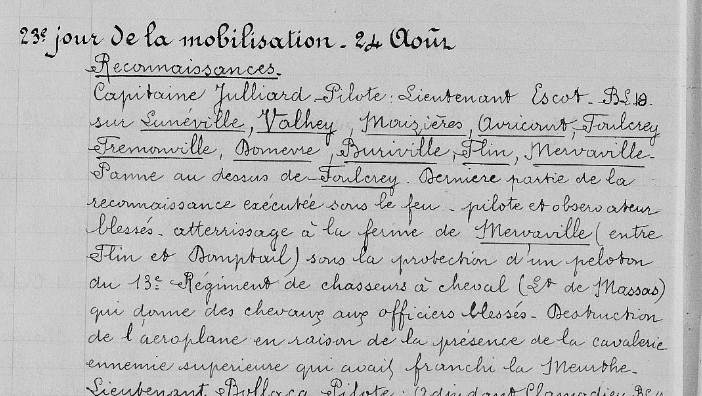 23e jour de la mobilisation - 24 Août
Reconnaissances.
Capitaine Julliard - Pilote : Lieutenant Escot - BL 18.
sur Lunéville, Valhey, Moizières, Avricourt, Foulcrey
Fremonville, Domevre, Buriville, Flin, Mervaville -
Panne au dessus de Foulcrey. Dernière partie de la
reconnaissance exécutée sous le feu - pilote et observateur
blessés - atterrissage à la ferme de Mervaville (entre
Flin et Domptail) sous la protection d'un peloton
du 13e Régiment de chasseurs à cheval (Lt de Massas)
qui donne des chevaux aux officiers blessés - Destruction
de l'aéroplane en raison de la présence de la cavalerie
ennemie superieure qui avait franchi la Meurthe.
Lieutenant Pilote :